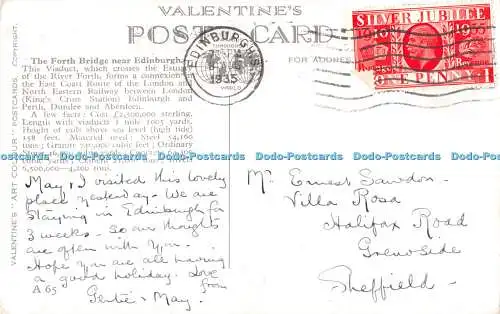 VALENTINE'S
POST CARD
FOR ADDRESS
EDINBURGH
1935
SILVER JUBILEE
1910 1935
ONE PENNY
The Forth Bridge near Edinburgh.
This Viaduct, which crosses the Estuary
of the River Forth, forms a connexion in
the East Coast Route of the London and
North Eastern Railway between London
(King's Cross Station) Edinburgh and
Perth, Dundee and Aberdeen.
A few facts: Cost £2,500,000 sterling.
Length with viaducts 1 mile 1005 yards.
Height of rails above sea level (high tide)
158 feet. Material used: Steel 54,160
tons; Granite cubic feet; Ordinary
Dodo-Postcards Dodo-Postcards Dodo-Postcards Dodo-Postcards Dodo-Postcards
May & I visited this lovely
place yesterday. We are
staying in Edinburgh for
3 weeks - so our thoughts
are often with you.
Hope you are all having
a good holiday. Love
from
Gertie & May.
A 65
Mr. Ernest Sawdon.
Villa Rosa
Halifax Road
Grenoside
Sheffield.
VALENTINE'S "ART COLOUR" POSTCARDS COPYRIGHT.